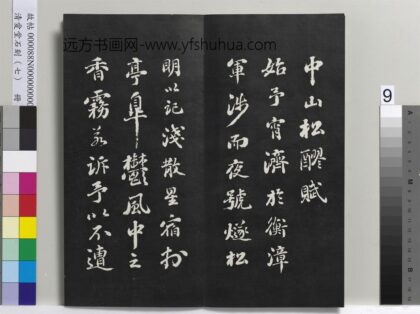 中山松醪賦
始予宵濟於衡漳
軍涉而夜號燧松
明以記淺散星宿於
亭皐鬱風中之
香霧若訴予以不遭
远方书画网-www.yfshuhua.com
故帖 000088N00000000
清愛堂石刻（七） 冊
9